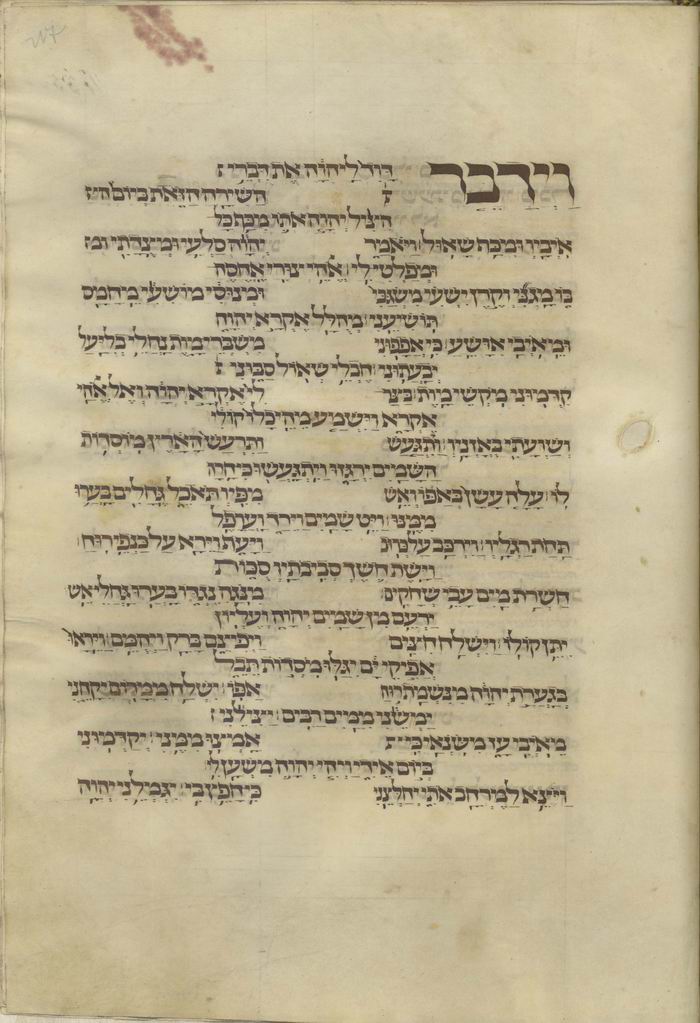 וידבר דוד ליהוה את דברי
השירה הזאת ביום
הציל יהוה אתו מכף כל
איביו ומכף שאול ויאמר יהוה סלעי ומצדתי ומ
ומפלטי לי אלהי צורי אחסה
בו מגני וקרן ישעי משגבי ומנוסי מושעי מחמס
תושיעני מהלל אקרא יהוה
ומאיבי אושע כי אפפוני משברי מות נחלי בליעל
יבעתוני חבלי שאול סבוני
קדמוני מקשי מות בצר לי אקרא יהוה ואל אלהי
אקרא וישמע מהיכלו קולי
ושועתי באזניו ותגעש ותרעש הארץ מוסדות
השמים ירגזו ויתגעשו כי חרה
לו עלה עשן באפו ואש מפיו תאכל גחלים בערו
ממנו ויט שמים וירד וערפל
תחת רגליו וירכב על כרוב ויעף וירא על כנפי רוח
וישת חשך סביבתיו סכות
חשרת מים עבי שחקים מנגה נגדו בערו גחלי אש
ירעם מן שמים יהוה ועליון
יתן קולו וישלח חצים ויפיצם ברק ויהמם ויראו
אפיקי ים יגלו מסדות תבל
בגערת יהוה מנשמת רוח אפו ישלח ממרום יקחני
ימשני ממים רבים יצילני
מאיבי עז משנאי כי אמצו ממני יקדמוני
ביום אידי ויהי יהוה משען לי
ויצא למרחב אתי יחלצני כי חפץ בי יגמלני יהוה